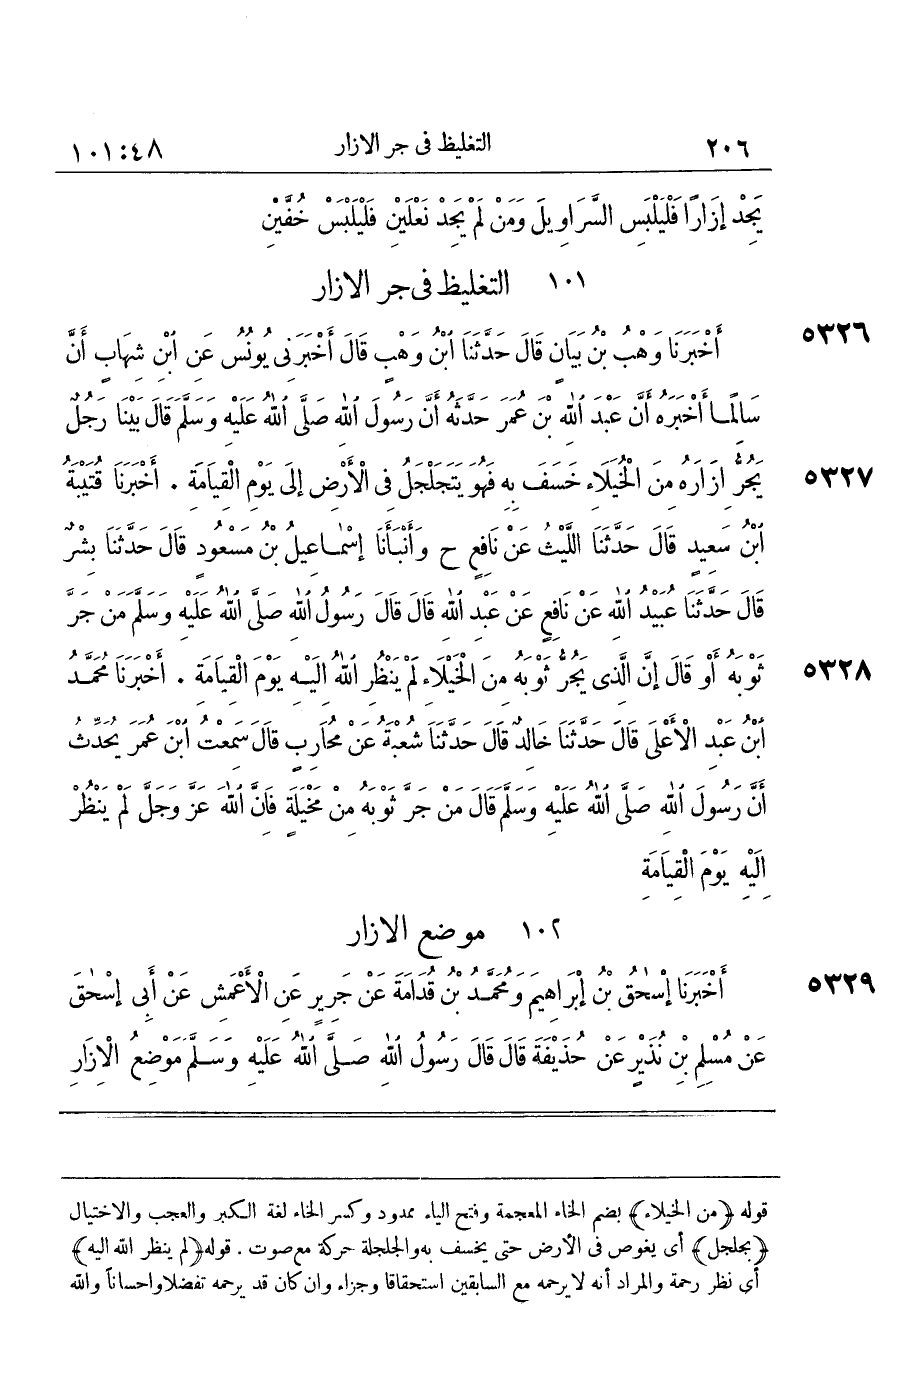 ٢٠٦ التغليظ فى جر الازار ٤٨:١٠١
يَجِدْ إِزَارًا فَلْيَلْبَسِ السَّرَاوِيلَ وَمَنْ لَمْ يَجِدْ نَعْلَيْنِ فَلْيَلْبَسْ خُفَّيْنِ
١٠١ التغليظ فى جر الازار
٥٣٢٦ أَخْبَرَنَا وَهْبُ بْنُ بَيَانٍ قَالَ حَدَّثَنَا ابْنُ وَهْبٍ قَالَ أَخْبَرَنِى يُونُسُ عَنِ ابْنِ شِهَابٍ أَنَّ
سَالِمًا أَخْبَرَهُ أَنَّ عَبْدَ اللهِ بْنَ عُمَرَ حَدَّثَهُ أَنَّ رَسُولَ اللهِ صَلَّى اللهُ عَلَيْهِ وَسَلَّمَ قَالَ بَيْنَا رَجُلٌ
٥٣٢٧ يَجُرُّ ازَارَهُ مِنَ الْخُيَلَاءِ خَسَفَ بِهِ فَهُوَ يَتَجَلْجَلُ فِى الْأَرْضِ إِلَى يَوْمِ الْقِيَامَةِ . أَخْبَرَنَا قُتَيْبَةُ
ابْنُ سَعِيدٍ قَالَ حَدَّثَنَا اللَّيْثُ عَنْ نَافِعٍ ح وَأَنْبَأَنَا إِسْمَاعِيلُ بْنُ مَسْعُودٍ قَالَ حَدَّثَنَا بِشْرٌ
قَالَ حَدَّثَنَا عُبَيْدُ اللهِ عَنْ نَافِعٍ عَنْ عَبْدِ اللهِ قَالَ قَالَ رَسُولُ اللهِ صَلَّى اللهُ عَلَيْهِ وَسَلَّمَ مَنْ جَرَّ
٥٣٢٨ ثَوْبَهُ أَوْ قَالَ إِنَّ الَّذِى يَجُرُّ ثَوْبَهُ مِنَ الْخُيَلَاءِ لَمْ يَنْظُرِ اللهُ الَيْهِ يَوْمَ الْقِيَامَةِ . أَخْبَرَنَا مُحَمَّدُ
ابْنُ عَبْدِ الْأَعْلَى قَالَ حَدَّثَنَا خَالِدٌ قَالَ حَدَّثَنَا شُعْبَةُ عَنْ مُحَارِبٍ قَالَ سَمِعْتُ ابْنَ عُمَرَ يُحَدِّثُ
أَنَّ رَسُولَ اللهِ صَلَّى اللهُ عَلَيْهِ وَسَلَّمَ قَالَ مَنْ جَرَّ ثَوْبَهُ مِنْ مَخِيلَةٍ فَانَّ اللهَ عَزَّ وَجَلَّ لَمْ يَنْظُرْ
الَيْهِ يَوْمَ الْقِيَامَةِ
١٠٢ موضع الازار
٥٣٢٩ أَخْبَرَنَا إِسْحٰقُ بْنُ إِبْرَاهِيمَ وَمُحَمَّدُ بْنُ قُدَامَةَ عَنْ جَرِيرٍ عَنِ الْأَعْمَشِ عَنْ أَبِى إِسْحٰقَ
عَنْ مُسْلِمِ بْنِ نُذَيْرٍ عَنْ حُذَيْفَةَ قَالَ قَالَ رَسُولُ اللهِ صَلَّى اللهُ عَلَيْهِ وَسَلَّمَ مَوْضِعُ الْإِزَارِ
قوله ﴿من الخيلاء﴾ بضم الخاء المعجمة وفتح الياء ممدود وكسر الخاء لغة الكبر والعجب والاختيال
﴿يجلجل﴾ أى يغوص فى الأرض حتى يخسف به والجلجلة حركة مع صوت . قوله ﴿لم ينظر الله اليه﴾
أى نظر رحمة والمراد أنه لا يرحمه مع السابقين استحقاقا وجزاء وان كان قد يرحمه تفضلا واحساناً والله